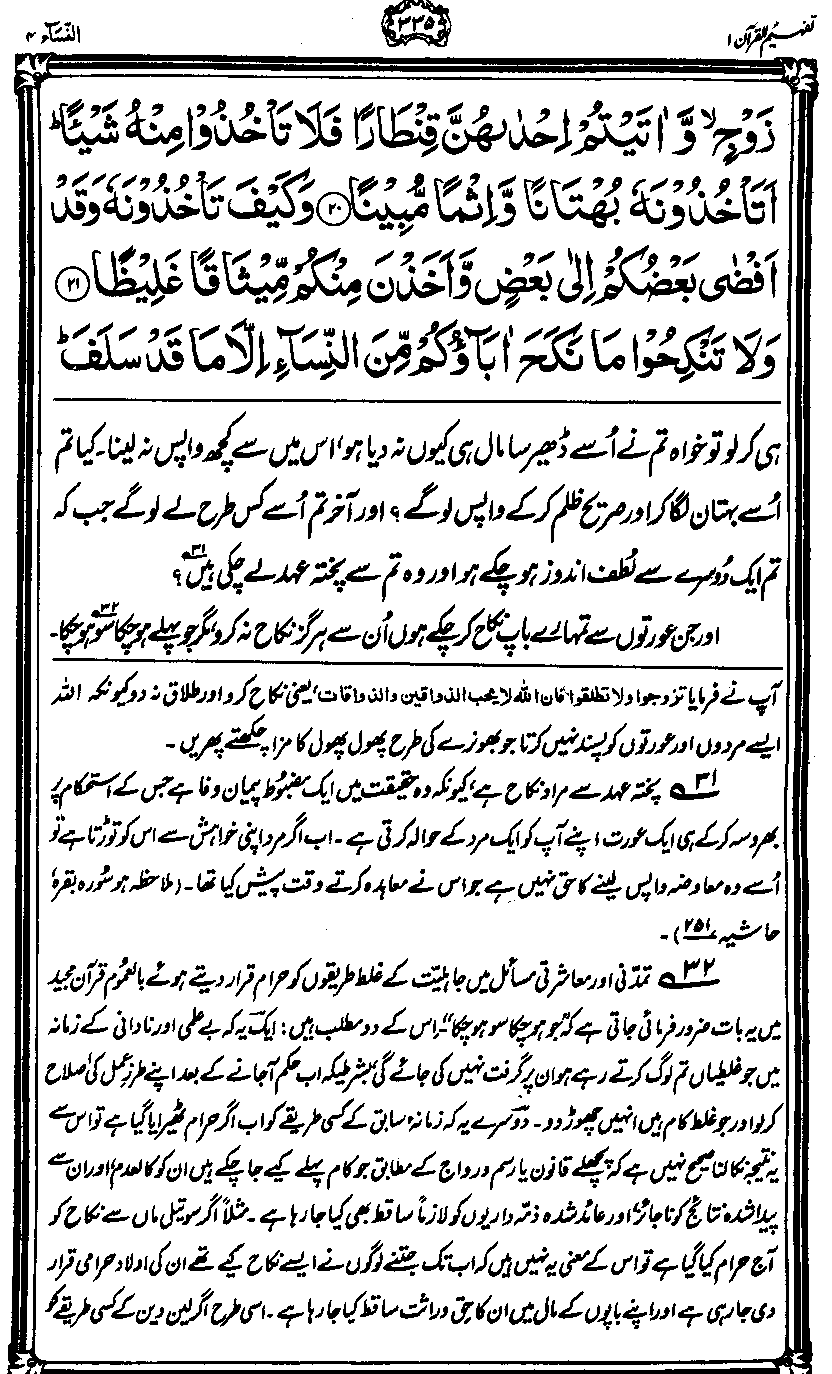 تفہیم القرآن ۱
۳۳۵
النساء ۴
زَوْجٍ ۙ وَّاٰتَيْتُمْ اِحْدٰىهُنَّ قِنْطَارًا فَلَا تَاْخُذُوْا مِنْهُ شَيْئًا ؕ
اَتَاْخُذُوْنَهٗ بُهْتَانًا وَّاِثْمًا مُّبِيْنًا ﴿۲۰﴾ وَكَيْفَ تَاْخُذُوْنَهٗ وَقَدْ
اَفْضٰى بَعْضُكُمْ اِلٰى بَعْضٍ وَّاَخَذْنَ مِنْكُمْ مِّيْثَاقًا غَلِيْظًا ﴿۲۱﴾
وَلَا تَنْكِحُوْا مَا نَكَحَ اٰبَآؤُكُمْ مِّنَ النِّسَآءِ اِلَّا مَا قَدْ سَلَفَ ؕ
ہی کر لو تو خواہ تم نے اُسے ڈھیر سا مال ہی کیوں نہ دیا ہو، اس میں سے کچھ واپس نہ لینا۔ کیا تم
اُسے بہتان لگا کر اور صریح ظلم کر کے واپس لو گے ؟ اور آخر تم اُسے کس طرح لے لو گے جب کہ
تم ایک دُوسرے سے لُطف اندوز ہو چکے ہو اور وہ تم سے پختہ عہد لے چکی ہیں۳۱ ؟
اور جن عورتوں سے تمہارے باپ نکاح کر چکے ہوں اُن سے ہرگز نکاح نہ کرو، مگر جو پہلے ہو چکا سو ہو چکا۳۲۔
آپ نے فرمایا تزوجوا ولا تطلقوا فان الله لا يحب الذواقين والذواقات، یعنی نکاح کرو اور طلاق نہ دو کیونکہ اللہ
ایسے مردوں اور عورتوں کو پسند نہیں کرتا جو بھونرے کی طرح پھول پھول کا مزا چکھتے پھریں۔
۳۱ پختہ عہد سے مراد نکاح ہے، کیونکہ وہ حقیقت میں ایک مضبُوط پیمانِ وفا ہے جس کے استحکام پر
بھروسہ کر کے ہی ایک عورت اپنے آپ کو ایک مرد کے حوالہ کرتی ہے۔ اب اگر مرد اپنی خواہش سے اس کو توڑتا ہے تو
اُسے وہ معاوضہ واپس لینے کا حق نہیں ہے جو اس نے معاہدہ کرتے وقت پیش کیا تھا۔ (ملاحظہ ہو سُورہ بقرہ،
حاشیہ ۲۵۱)۔
۳۲ تمدّنی اور معاشرتی مسائل میں جاہلیّت کے غلط طریقوں کو حرام قرار دیتے ہوئے بالعمُوم قرآن مجید
میں یہ بات ضرور فرمائی جاتی ہے کہ ”جو ہو چکا سو ہو چکا“۔ اس کے دو مطلب ہیں : ایک یہ کہ بے علمی اور نادانی کے زمانہ
میں جو غلطیاں تم لوگ کرتے رہے ہو ان پر گرفت نہیں کی جائے گی، بشرطیکہ اب حکم آ جانے کے بعد اپنے طرزِ عمل کی اصلاح
کر لو اور جو غلط کام ہیں انہیں چھوڑ دو۔ دوسرے یہ کہ زمانۂ سابق کے کسی طریقے کو اب اگر حرام ٹھیرایا گیا ہے تو اس سے
یہ نتیجہ نکالنا صحیح نہیں ہے کہ پچھلے قانون یا رسم و رواج کے مطابق جو کام پہلے کیے جا چکے ہیں ان کو کالعدم، اور ان سے
پیدا شدہ نتائج کو ناجائز، اور عائد شدہ ذمّہ داریوں کو لازماً ساقط بھی کیا جا رہا ہے۔ مثلاً اگر سوتیلی ماں سے نکاح کو
آج حرام کیا گیا ہے تو اس کے معنی یہ نہیں ہیں کہ اب تک جتنے لوگوں نے ایسے نکاح کیے تھے ان کی اولاد حرامی قرار
دی جا رہی ہے اور اپنے باپوں کے مال میں ان کا حقِ وراثت ساقط کیا جا رہا ہے۔ اسی طرح اگر لین دین کے کسی طریقے کو